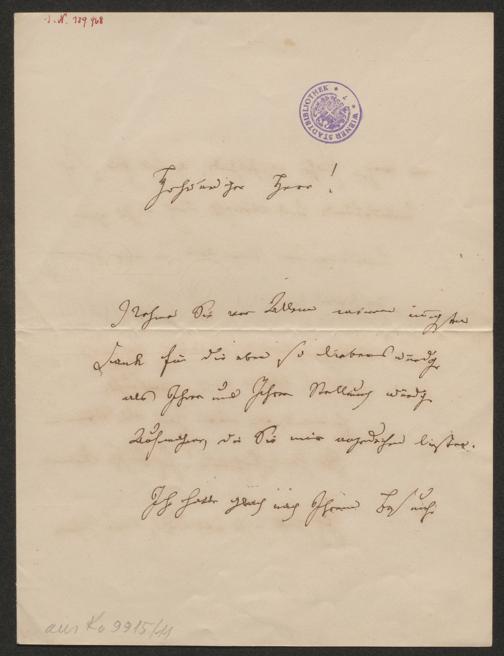 I. N. 129.968
WIENER STADTBIBLIOTHEK
Hochwürdiger Herr!
Nehmen Sie vor Allem meinen innigsten
Dank für die eben so liebenswürdige
als Ihrer und Ihrer Stellung würdige
Aufnahme, die Sie mir angedeihen ließen.
Ich hatte gleich nach Ihrem Besuche
aus Ko 9915/11